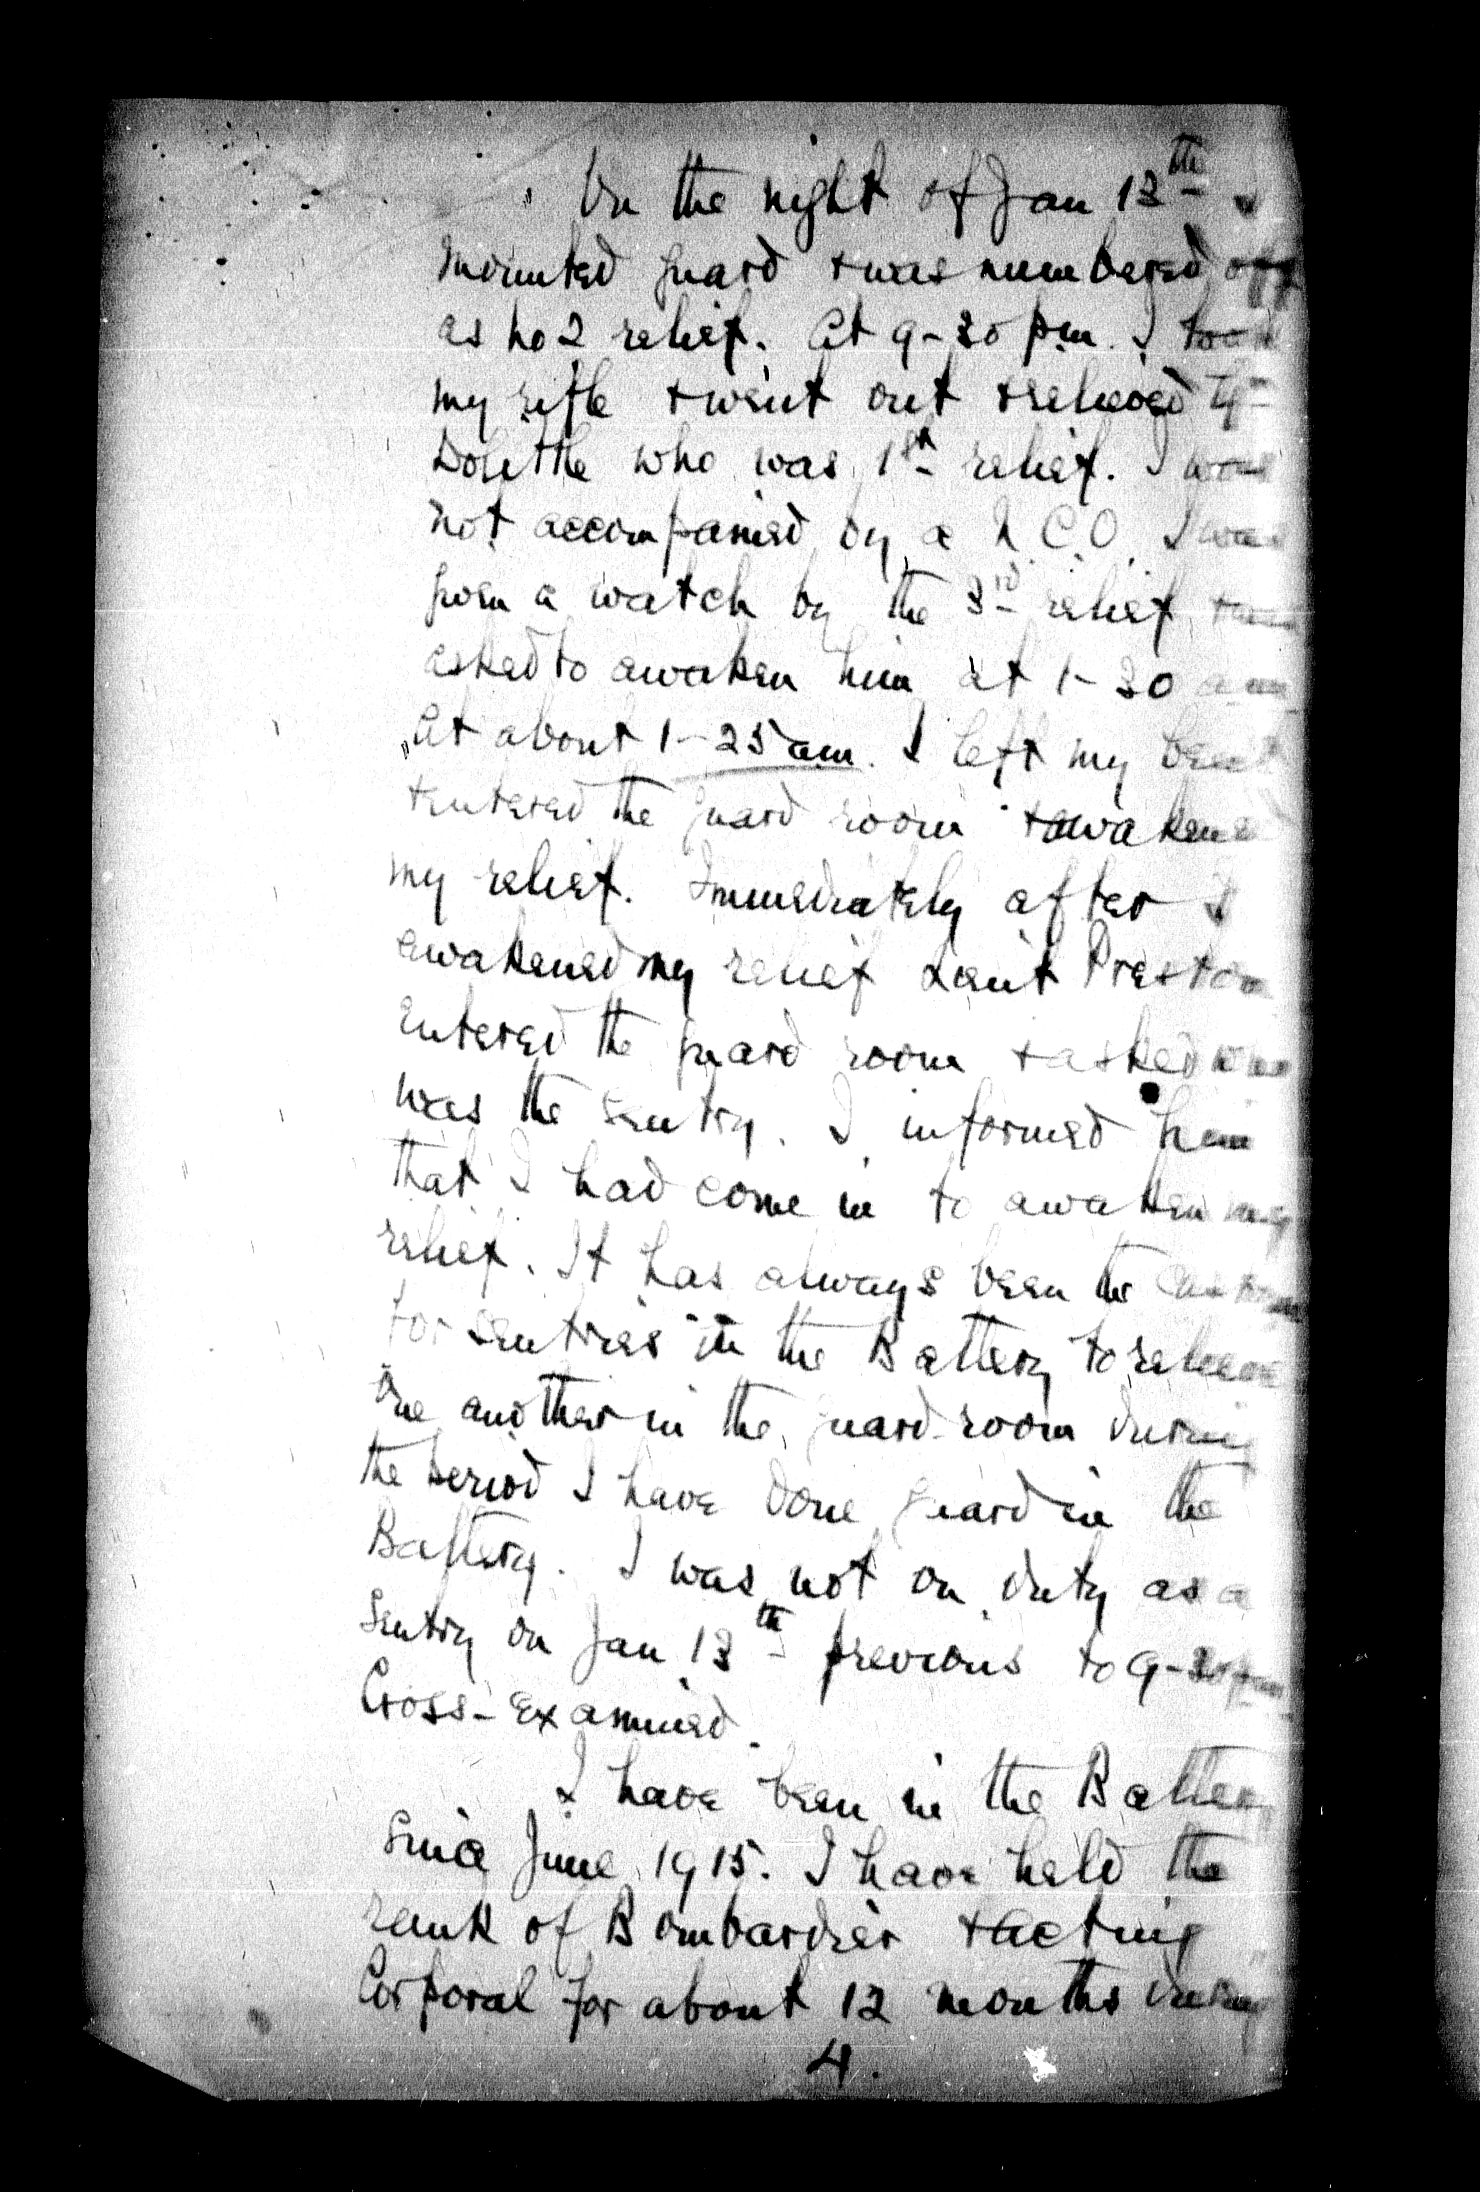 On the night of Jan 13th I
mounted guard & was numbered off
as no 2 relief. At 9-30 pm. I took
my rifle & went out & relieved
Dolittle who was 1st relief. I was
not accompanied by a N.C.O. I was
given a watch by the 3rd relief & was
asked to awaken him at 1-30 am
At about 1-25 am. I left my beat
& entered the guard room & awakened
my relief. Immediately after I
awakened my relief Lieut Preston
entered the guard room & asked who
was the sentry. I informed him
that I had come in to awaken my
relief. It has always been the custom
for sentries in the Battery to relieve
one another in the guard-room during
the period I have done guard in the
Battery. I was not on duty as a
Sentry on Jan 13th previous to 9-30 pm
Cross-examined.
I have been in the Battery
since June 1915. I have held the
rank of Bombardier & acting
Corporal for about 12 months during
4.